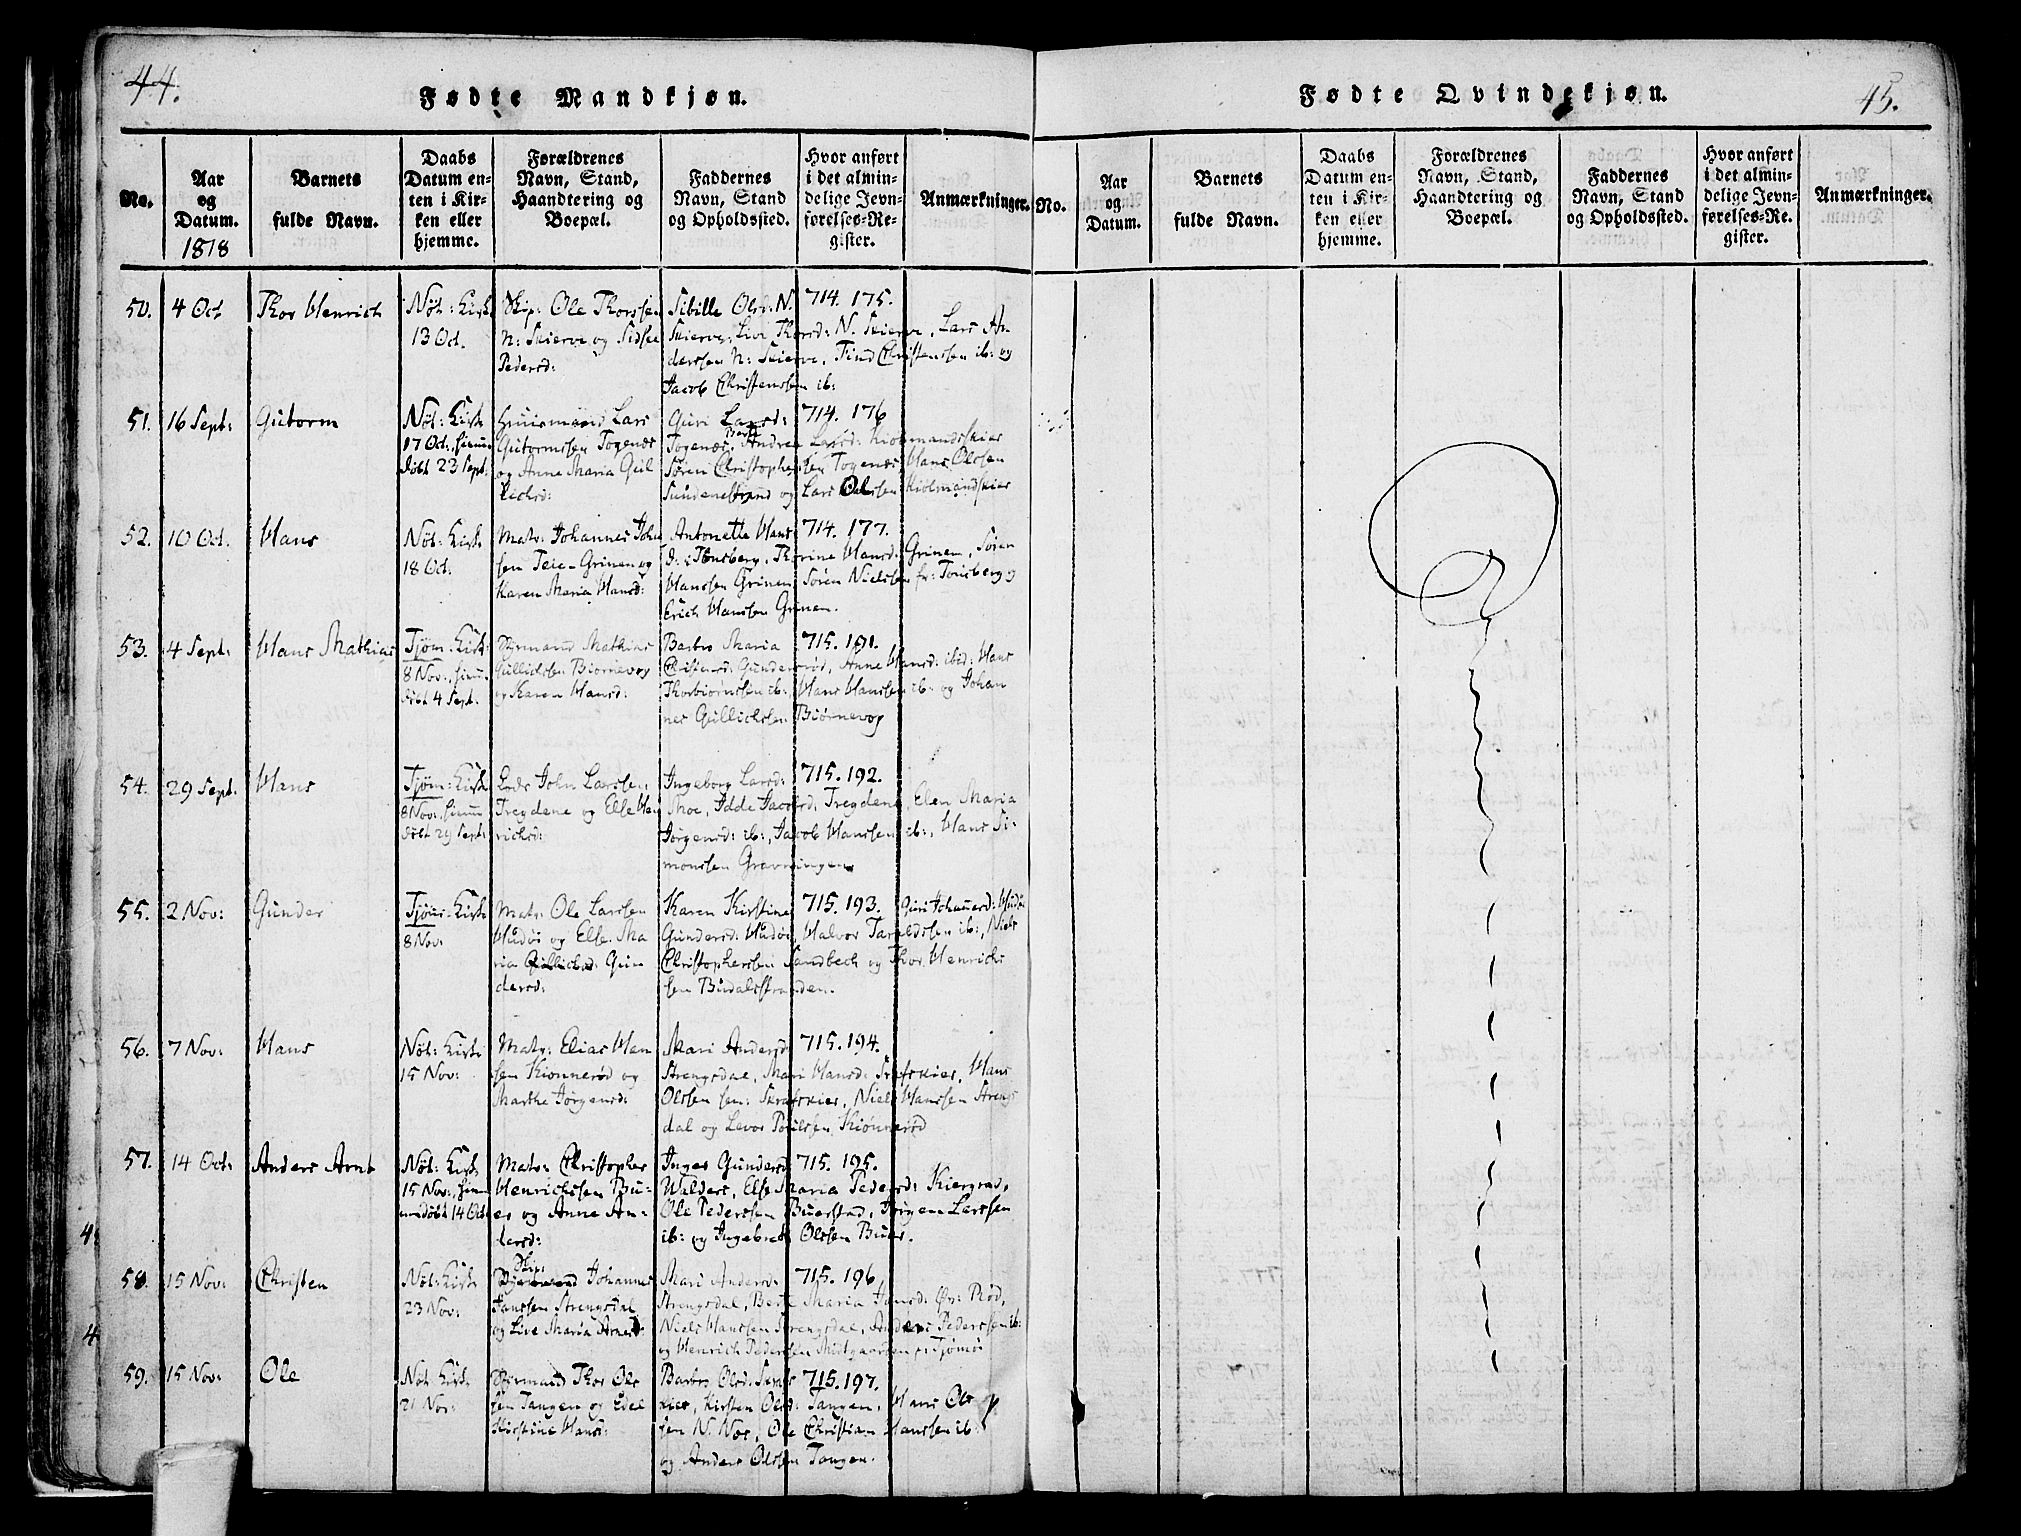 44.
Fødte Mandkjøn.
No.
Aar
og
Datum.
1818
Barnets
fulde Navn.
Daabs
Datum en-
ten i Kir-
ken eller
hjemme.
Forældrenes
Navn, Stand,
Haandtering og
Boepæl.
Faddernes
Navn, Stand
og Opholdssted.
Hvor anført
i det almin-
delige Jevn-
førelses-Re-
gister.
Anmærkninger.
50. 4 Oct Thor Henrich
Nøt: Kirke
13 Oct.
Skip: Ole Thorssen
N: Skierve og Sidsel
Pedersd:
Sibille Olsd: N.
Skierve, Live Thorsd: N. Skierve, Lars An
derssen N: Skierve, Christenssen ib: og
Jacob Christenssen ib:
714. 175.
51. 16 Sept: Gutorm
Nøt: Kirk
17 Oct:, hiem
døbt 23 Sept:
Huusmand Lars
Gutormssen Togenes
og Anne Maria Gul
lichsd:
Guri Larsd:
Togenes, Andrea Larsd: Kiølmandskier
Søren Christophersen Togenes, Hans Olssen
Sundenestrand og Lars Olssen Kiølmandskier
714. 176
52. 10 Oct. Hans
Nøt: Kirk
18 Oct:
Matr: Johannes Joha
sen Teie-Grinen og
Karen Maria Hansd:
Antonette Hans
D: Tønsberg, Thorine Hansd: Grinen, Søren
Hanssen Grinen, Søren Nielssen fr: Tønsberg og
Erich Hanssen Grinen.
714. 177.
53. 4 Sept: Hans Mathias
Tjøm: Kirk:
8 Nov:, hiem
døbt 4 Sept:
Styrmand Mathias
Gullichssen Biørnevog
og Karen Hansd:
Barbro Maria
Christensd: Gundersrød, Anne Hansd: ibid: Hans
Thorbiørnssen ib: Hans Hanssen ib: og Johan
nes Gullichssen Biørnevog
715. 191.
54. 29 Sept: Hans
Tjøm: Kirk
8 Nov:, hiem
døbt 29 Sept:
John Larssen
Tregdene og Else Hen
richsd:
Ingeborg Larsd:
Moe, Idde Jacobsd: Tregdene, Elen Maria
Jørgensd: ib:, Jacob Hanssen ib:, Hans Si-
monssen Gravningen
715. 192.
55. 2 Nov: Gunder
Tjøm: Kirk
8 Nov:
Matr: Ole Larssen
Hudøe og Else Ma
ria Gullichsd: Gun
dersd:
Karen Kirstine
Gundersd: Hudøe, Halvor Taraldssen ib:, Niels
Christopherssen Sandbech og Thor Henrichs
sen Budalsstranden.
715. 193.
Guri Johannesd: Hudøe
56. 7 Nov: Hans
Nøt: Kirk
15 Nov:
Matr: Elias Han
sen Kiønnerød og
Marthe Jørgensd:
Mari Andersd
Strengsdal, Mari Hansd: Skrafskier, Hans
Olssen sen: Skrafskier, Niels Hanssen Strengs
dal og Levor Poulssen Kiønnerød
715. 194.
57. 14 Oct: Anders Arnt
Nøt: Kirk
15 Nov:, hiem
medøbt 14 Oct
Matr: Christopher
Henrichssen Bu-
er og Anne An-
dersd:
Inger Gundersd
Walders, Else Maria Pedersd: Kiergrad,
Ole Pederssen Buerstad, Jørgen Larssen
ib: og Ingebret Olssen Buer.
715. 195.
58. 15 Nov: Christen
Nøt: Kirk
23 Nov:
Skip:
Styrmand Johannes
Janssen Strengsdal
og Live Maria Arnesd:
Mari Andersd.
Strengsdal, Berte Maria Jansd: Øv: Rød,
Niels Hanssen Strengsdal, Anders Pederssen ib:
og Henrich Pederssen Midtgaarden pr: Tjømø
715. 196
59. 15 Nov: Ole
Nøt: Kirk
21 Nov:
Styrmand Thor Ols
sen Tangen og Edel
Kirstine Hansd:
Barbro Olsd:
Kirsten Olsd: Tangen, Hans Ols
sen N. Nøe, Ole Christian Hanssen ib:
og Anders Olssen Tangen.
715. 197.
4
4
Fødte Qvindekjøn.
45.
No.
Aar
og
Datum.
Barnets
fulde Navn.
Daabs
Datum en-
ten i Kir-
ken eller
hjemme.
Forældrenes
Navn, Stand,
Haandtering og
Boepæl.
Faddernes
Navn, Stand
og Opholdssted.
Hvor anført
i det almin-
delige Jevn-
førelses-Re-
gister.
Anmærkninger.